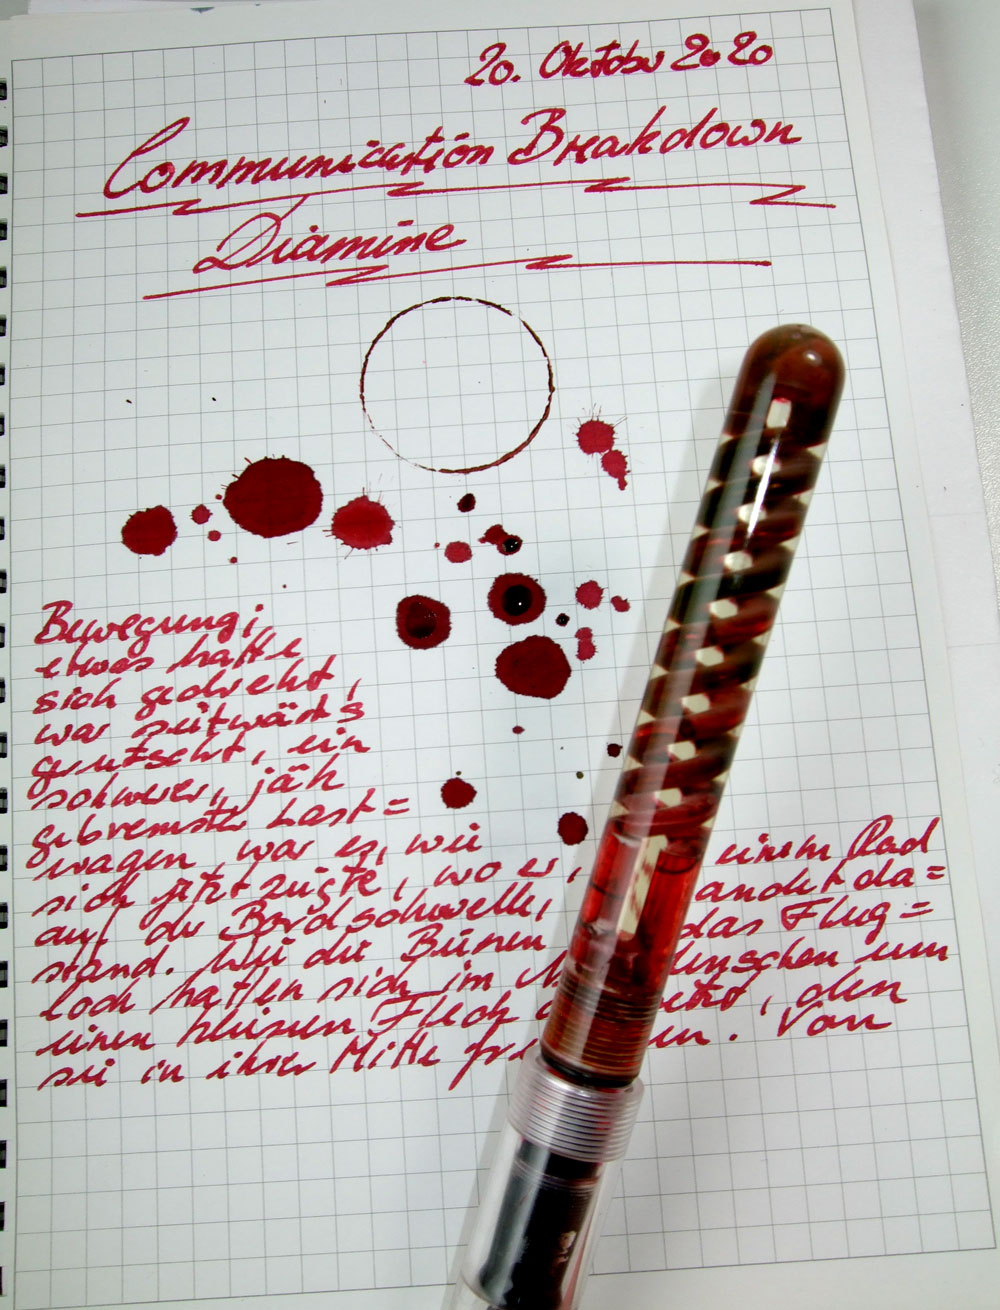 20. Oktober 2020
Communication Breakdown
Diamine
Bewegung;
etwas hatte
sich gedreht,
war seitwärts
gerutscht, ein
schwerer, jäh
gebremster Last=
wagen war es, wie
sich jetzt zeigte, wo er, einem Rad
auf der Bordschwelle, andet da=
stand. Wie die Bienen das Flug=
loch hatten sich im enschen um
einen kleinen Fleck etzt, den
sie in ihrer Mitte fre en. Von